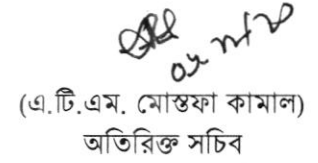 (এ.টি.এম. মোস্তফা কামাল)
অতিরিক্ত সচিব